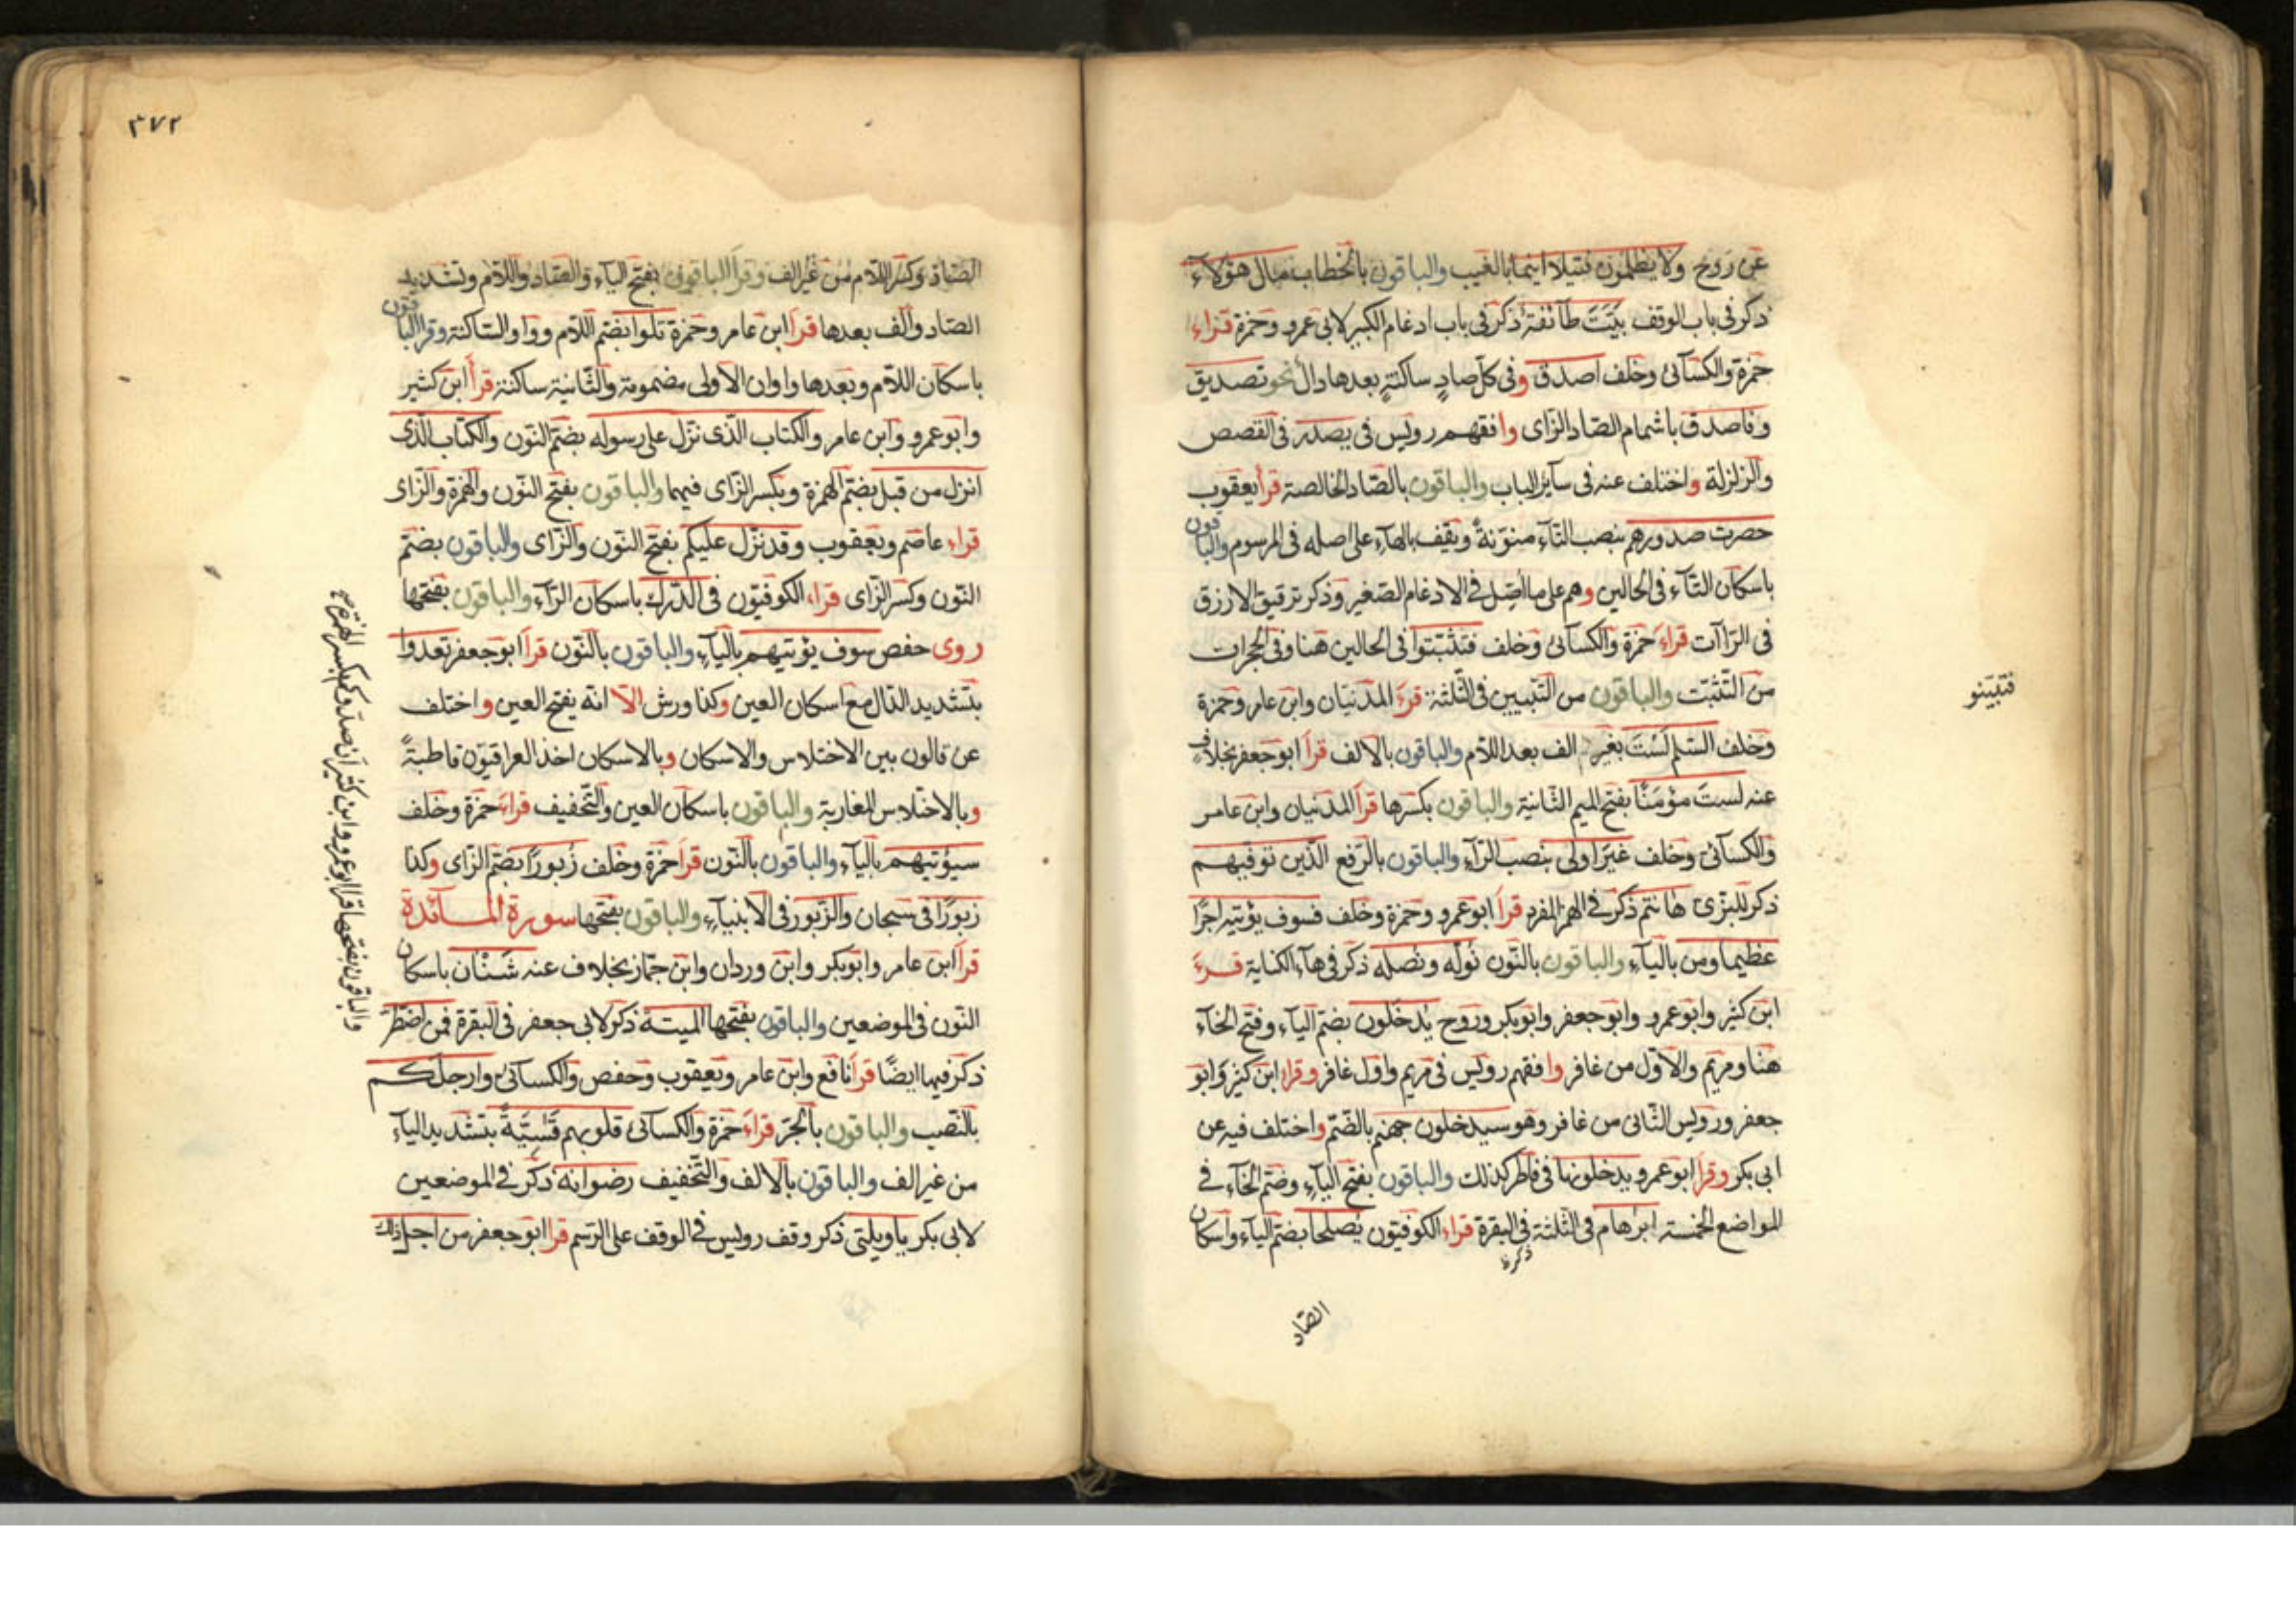 عن روح ولا يظلمون فتيلا اينما بالغيب والباقون بالخطاب مال هؤلاء
ذكر في باب الوقف بيّت طآئفة ذكر في باب ادغام الكبير لابي عمرو وحمزة قراء
حمزة والكسآئي وخلف اصدق وفي كلّ صادٍ ساكنةٍ بعدها دال نحو تصديق
وفاصدق باشمام الصّاد الزّاي وافقهم رويس في يصدر في القصص
والزلزلة واختلف عنه في سآئر الباب والباقون بالصّاد الخالصة قرأ يعقوب
حصرت صدورهم بنصب التّآء منوّنةً ويقف بالهآء على اصله في المرسوم والباقون
باسكان التّآء في الحالين وهم على ما اُصّل في الادغام الصّغير وذكر ترقيق الازرق
في الرّاآت قراء حمزة والكسآئي وخلف فتثبّتوا في الحالين هنا وفي الحجرات
من التّثبّت والباقون من التّبيين في الثّلثة قرء المدنيان وابن عامر وحمزة
فتبيّنو
وخلف السّلم لَسْتَ بغير الف بعد اللام والباقون بالالف قرأ ابوجعفر بخلاف
عنه لست مؤمَنًا بفتح الميم الثّانية والباقون بكسرها قرأ المدنيان وابن عامر
والكسآئي وخلف غيرَ اولى بنصب الرّآء والباقون بالرّفع الّذين توفّيهم
ذكر للبزّي هٰانتم ذكر في الهمز المفرد قرأ ابوعمرو وحمزة وخلف فسوف يؤتيه اجرًا
عظيما ومن بالياء والباقون بالنّون نُولّه ونُصله ذكر في هآء الكناية قرء
ابن كثير وابوعمرو وابوجعفر وابوبكر وروح يدخلون بضمّ اليآء وفتح الخآء
هنا ومريم والاوّل من غافر وافقهم رويس في مريم واول غافر وقرا ابن كثير وابو
جعفر ورويس الثّاني من غافر وهو سيدخلون جهنّم بالضّمّ واختلف فيه عن
ابي بكر وقرا ابوعمرو يدخلونها في فاطر كذلك والباقون بفتح اليآء وضمّ الخآء في
المواضع الخمسة ابرٰهام في الثّلثة في البقرة قراء الكوفيّون يُصلحا بضمّ اليآء واسكان
ذكر
الصّاد
٣٧٢
الصّاد وكسر اللام من غير الف وقرأ الباقون بفتح اليآء والصّاد واللام وتشديد
الصّاد والف بعدها قرأ ابن عامر وحمزة تلوا بضم اللّام وواو السّاكنة وقرا الباقون
باسكان اللآم وبعدها واوان الاولى مضمومة والثّانية ساكنة قرأ ابن كثير
وابوعمرو وابن عامر والكتاب الّذي نزّل على رسوله بضمّ النّون والكتاب الّذي
انزل من قبل بضمّ الهمزة وبكسر الزّاى فيهما والباقون بفتح النّون والهمزة والزّاى
قراء عاصم ويعقوب وقد نزّل عليكم بفتح النّون والزّاى والباقون بضمّ
النّون وكسر الزّاى قراء الكوفيّون في الدّرك باسكان الرّآء والباقون بفتحها
روى حفص سوف يؤتيهم باليآء والباقون بالنّون قرأ ابوجعفر تعدوا
بتشديد الدّال مع اسكان العين وكذا ورش الّا انّه يفتح العين واختلف
عن قالون بين الاختلاس والاسكان وبالاسكان اخذ العراقيّون قاطبةً
وبالاختلاس المغاربة والباقون باسكان العين والتّخفيف قراء حمزة وخلف
سيؤتيهم باليآء والباقون بالنّون قرأ حمزة وخلف زُبورًا بضمّ الزّاى وكذا
زبورًا في سبحان والزّبور في الانبيآء والباقون بفتحها سورة المآئدة
قرأ ابن عامر وابوبكر وابن وردان وابن جمّاز بخلاف عنه شَنْاٰن باسكان
النّون في الموضعين والباقون بفتحها الميتة ذكر لابي جعفر في البقرة فمن اضطرّ
ذكر فيها ايضًا قرأ نافع وابن عامر ويعقوب وحفص والكسآئي وارجلكم
بالنّصب والباقون بالجرّ قراء حمزة والكسآئي قلوبهم قَسِيّةً بتشديد اليآء
من غير الف والباقون بالالف والتّخفيف رضوانه ذكر في الموضعين
لابي بكر ياويلتى ذكر وقف رويس في الوقف على الرّسم قرأ ابوجعفر من اجل ذلك
والباقون بفتحها قرا ابوعمرو وابن كثير ان صدّوكم بكسر الهمزة